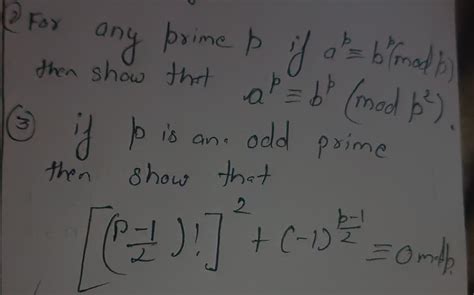 ② For any prime p if a^p ≡ b^p (mod p)
then show that
a^p ≡ b^p (mod p²).
③ if p is an odd prime
then show that
[((p-1)/2)!]² + (-1)^((p-1)/2) ≡ 0 mod p.